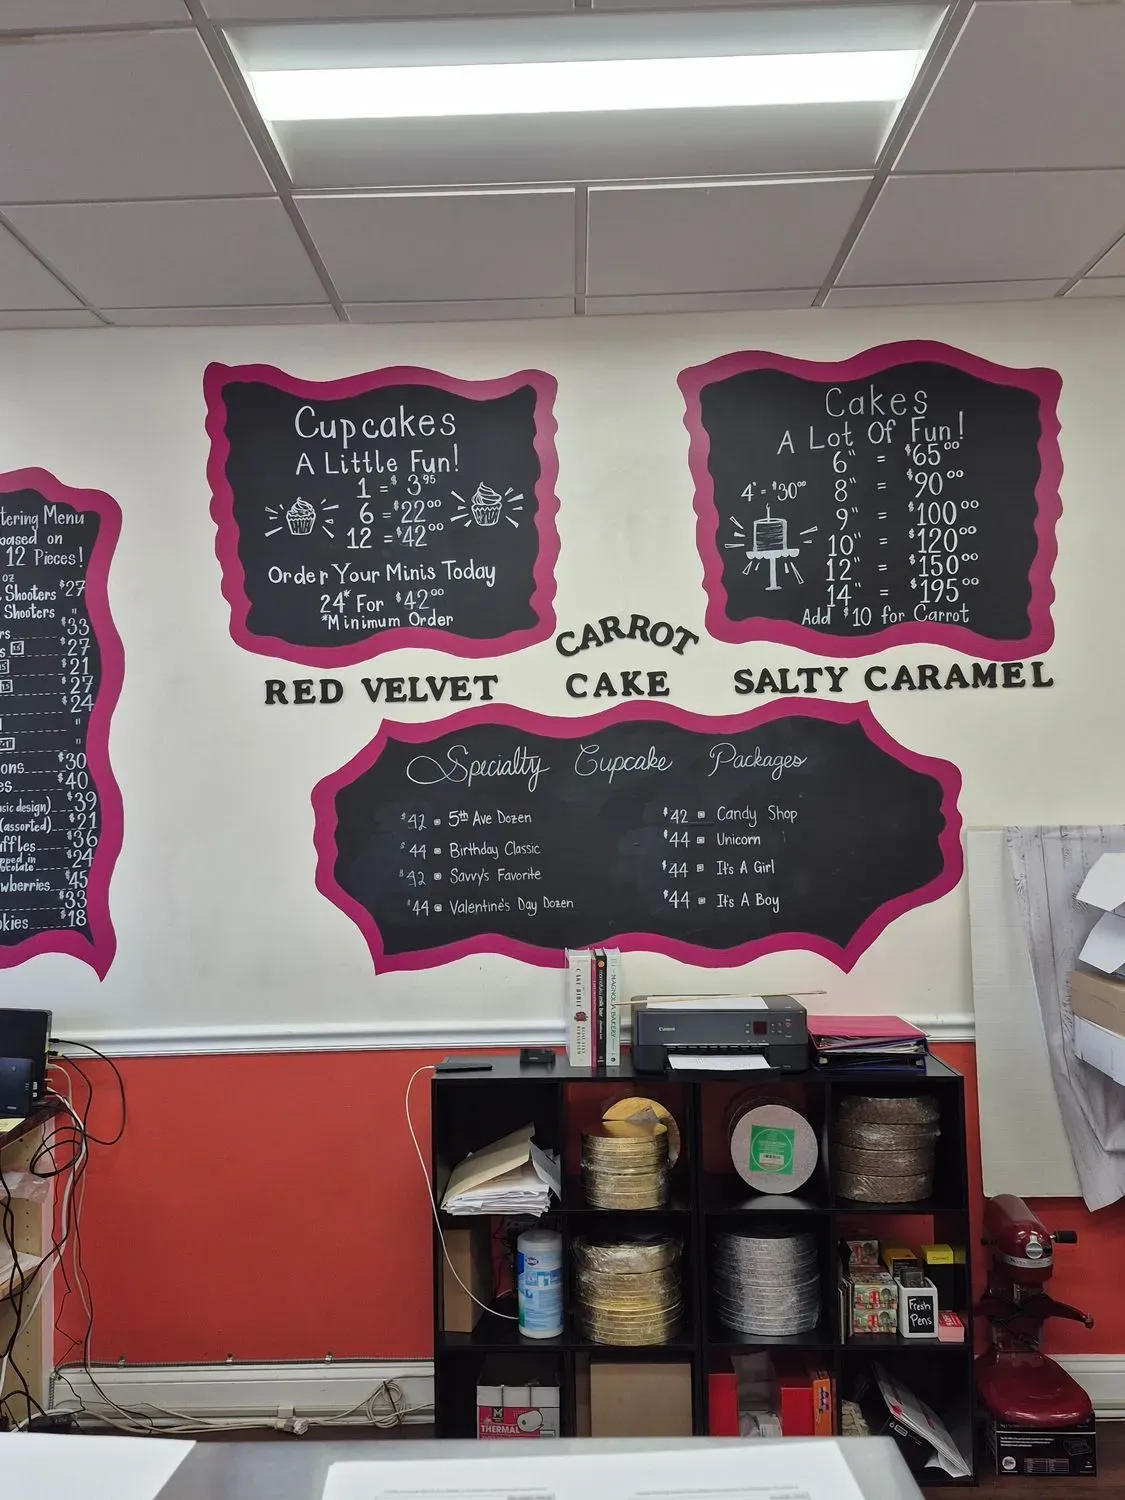 Cupcakes
A Little Fun!
1 = $3.95
6 = $22.00
12 = $42.00
Order Your Minis Today
24* For $42.00
*Minimum Order
Cakes
A Lot Of Fun!
4" = $30.00
6" = $65.00
8" = $90.00
9" = $100.00
10" = $120.00
12" = $150.00
14" = $195.00
Add $10 for Carrot
RED VELVET
CARROT
CAKE
SALTY CARAMEL
tering Menu
based on
12 Pieces!
oz
Shooters $27
Shooters "
rs $33
s $27
$21
$27
$24
"
"
ons $30
es $40
sic design) $39
(assorted) $21
uffles $36
pped in
ocolate $24
wberries $45
$33
kies $18
Specialty Cupcake Packages
$42 5th Ave Dozen
$44 Birthday Classic
$42 Savvy's Favorite
$44 Valentine's Day Dozen
$42 Candy Shop
$44 Unicorn
$44 It's A Girl
$44 It's A Boy
CAKE BIBLE
momofuku milk bar
MAGNOLIA BAKERY
Canon
Fresh
Pens
THERMAL